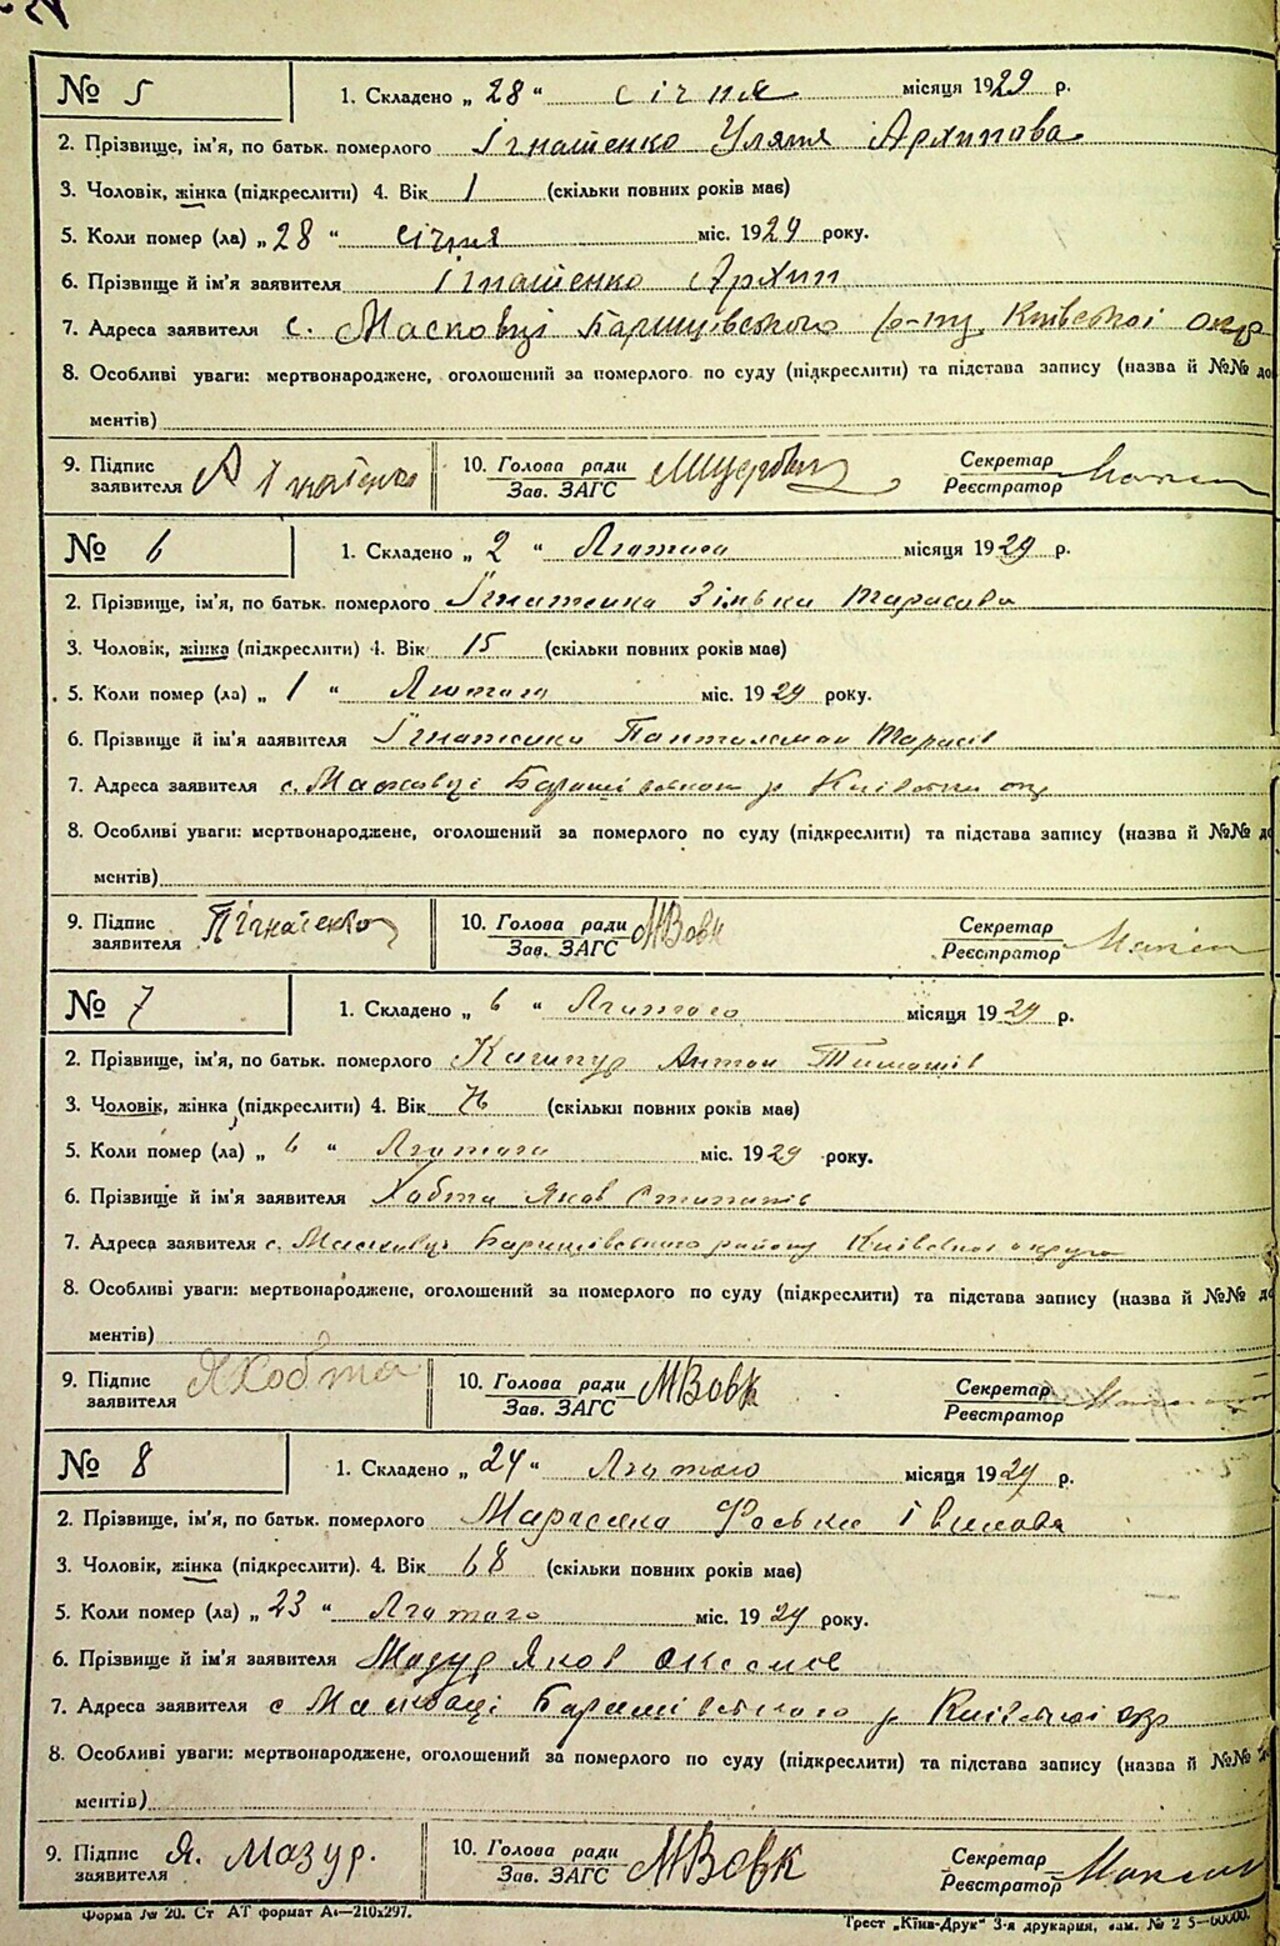 № 5 1. Складено „ 28 “ січня місяця 1929 р.
2. Прізвище, ім'я, по батьк. померлого Ігнатенко Уляня Архипова
3. Чоловік, жінка (підкреслити) 4. Вік 1 (скільки повних років має)
5. Коли помер (ла) „ 28 “ січня міс. 1929 року.
6. Прізвище й ім'я заявителя Ігнатенко Архип
7. Адреса заявителя с. Масковці Баришівського р-ну Київської окр
8. Особливі уваги: мертвонароджене, оголошений за померлого по суду (підкреслити) та підстава запису (назва й №№ до
ментів)
9. Підпис заявителя А Ігнатенко 10. Голова ради Зав. ЗАГС Секретар Реєстратор
№ 6 1. Складено „ 2 “ Лютого місяця 1929 р.
2. Прізвище, ім'я, по батьк. померлого Ігнатенко Зінька Тарасова
3. Чоловік, жінка (підкреслити) 4. Вік 15 (скільки повних років має)
5. Коли помер (ла) „ 1 “ Лютого міс. 1929 року.
6. Прізвище й ім'я заявителя Ігнатенко Панталемон Тарасів
7. Адреса заявителя с. Масковці Баришівського р Київської окр
8. Особливі уваги: мертвонароджене, оголошений за померлого по суду (підкреслити) та підстава запису (назва й №№ до
ментів)
9. Підпис заявителя П Ігнатенко 10. Голова ради Зав. ЗАГС МВовк Секретар Реєстратор
№ 7 1. Складено „ 6 “ Лютого місяця 1929 р.
2. Прізвище, ім'я, по батьк. померлого Антон Тимошів
3. Чоловік, жінка (підкреслити) 4. Вік 76 (скільки повних років має)
5. Коли помер (ла) „ 6 “ Лютого міс. 1929 року.
6. Прізвище й ім'я заявителя Хобта Яков Степанів
7. Адреса заявителя с. Масковці Баришівського району Київської округи
8. Особливі уваги: мертвонароджене, оголошений за померлого по суду (підкреслити) та підстава запису (назва й №№ до
ментів)
9. Підпис заявителя ЯХобта 10. Голова ради Зав. ЗАГС МВовк Секретар Реєстратор
№ 8 1. Складено „ 24 “ Лютого місяця 1929 р.
2. Прізвище, ім'я, по батьк. померлого Фоська
3. Чоловік, жінка (підкреслити). 4. Вік 68 (скільки повних років має)
5. Коли помер (ла) „ 23 “ Лютого міс. 1929 року.
6. Прізвище й ім'я заявителя Мазур Яков
7. Адреса заявителя с Масковці Баришівського р Київської окр
8. Особливі уваги: мертвонароджене, оголошений за померлого по суду (підкреслити) та підстава запису (назва й №№
ментів)
9. Підпис заявителя Я. Мазур. 10. Голова ради Зав. ЗАГС МВовк Секретар Реєстратор
Форма № 20. Ст АТ формат А4—210х297.
Трест „Київ-Друк“ 3-я друкарня,